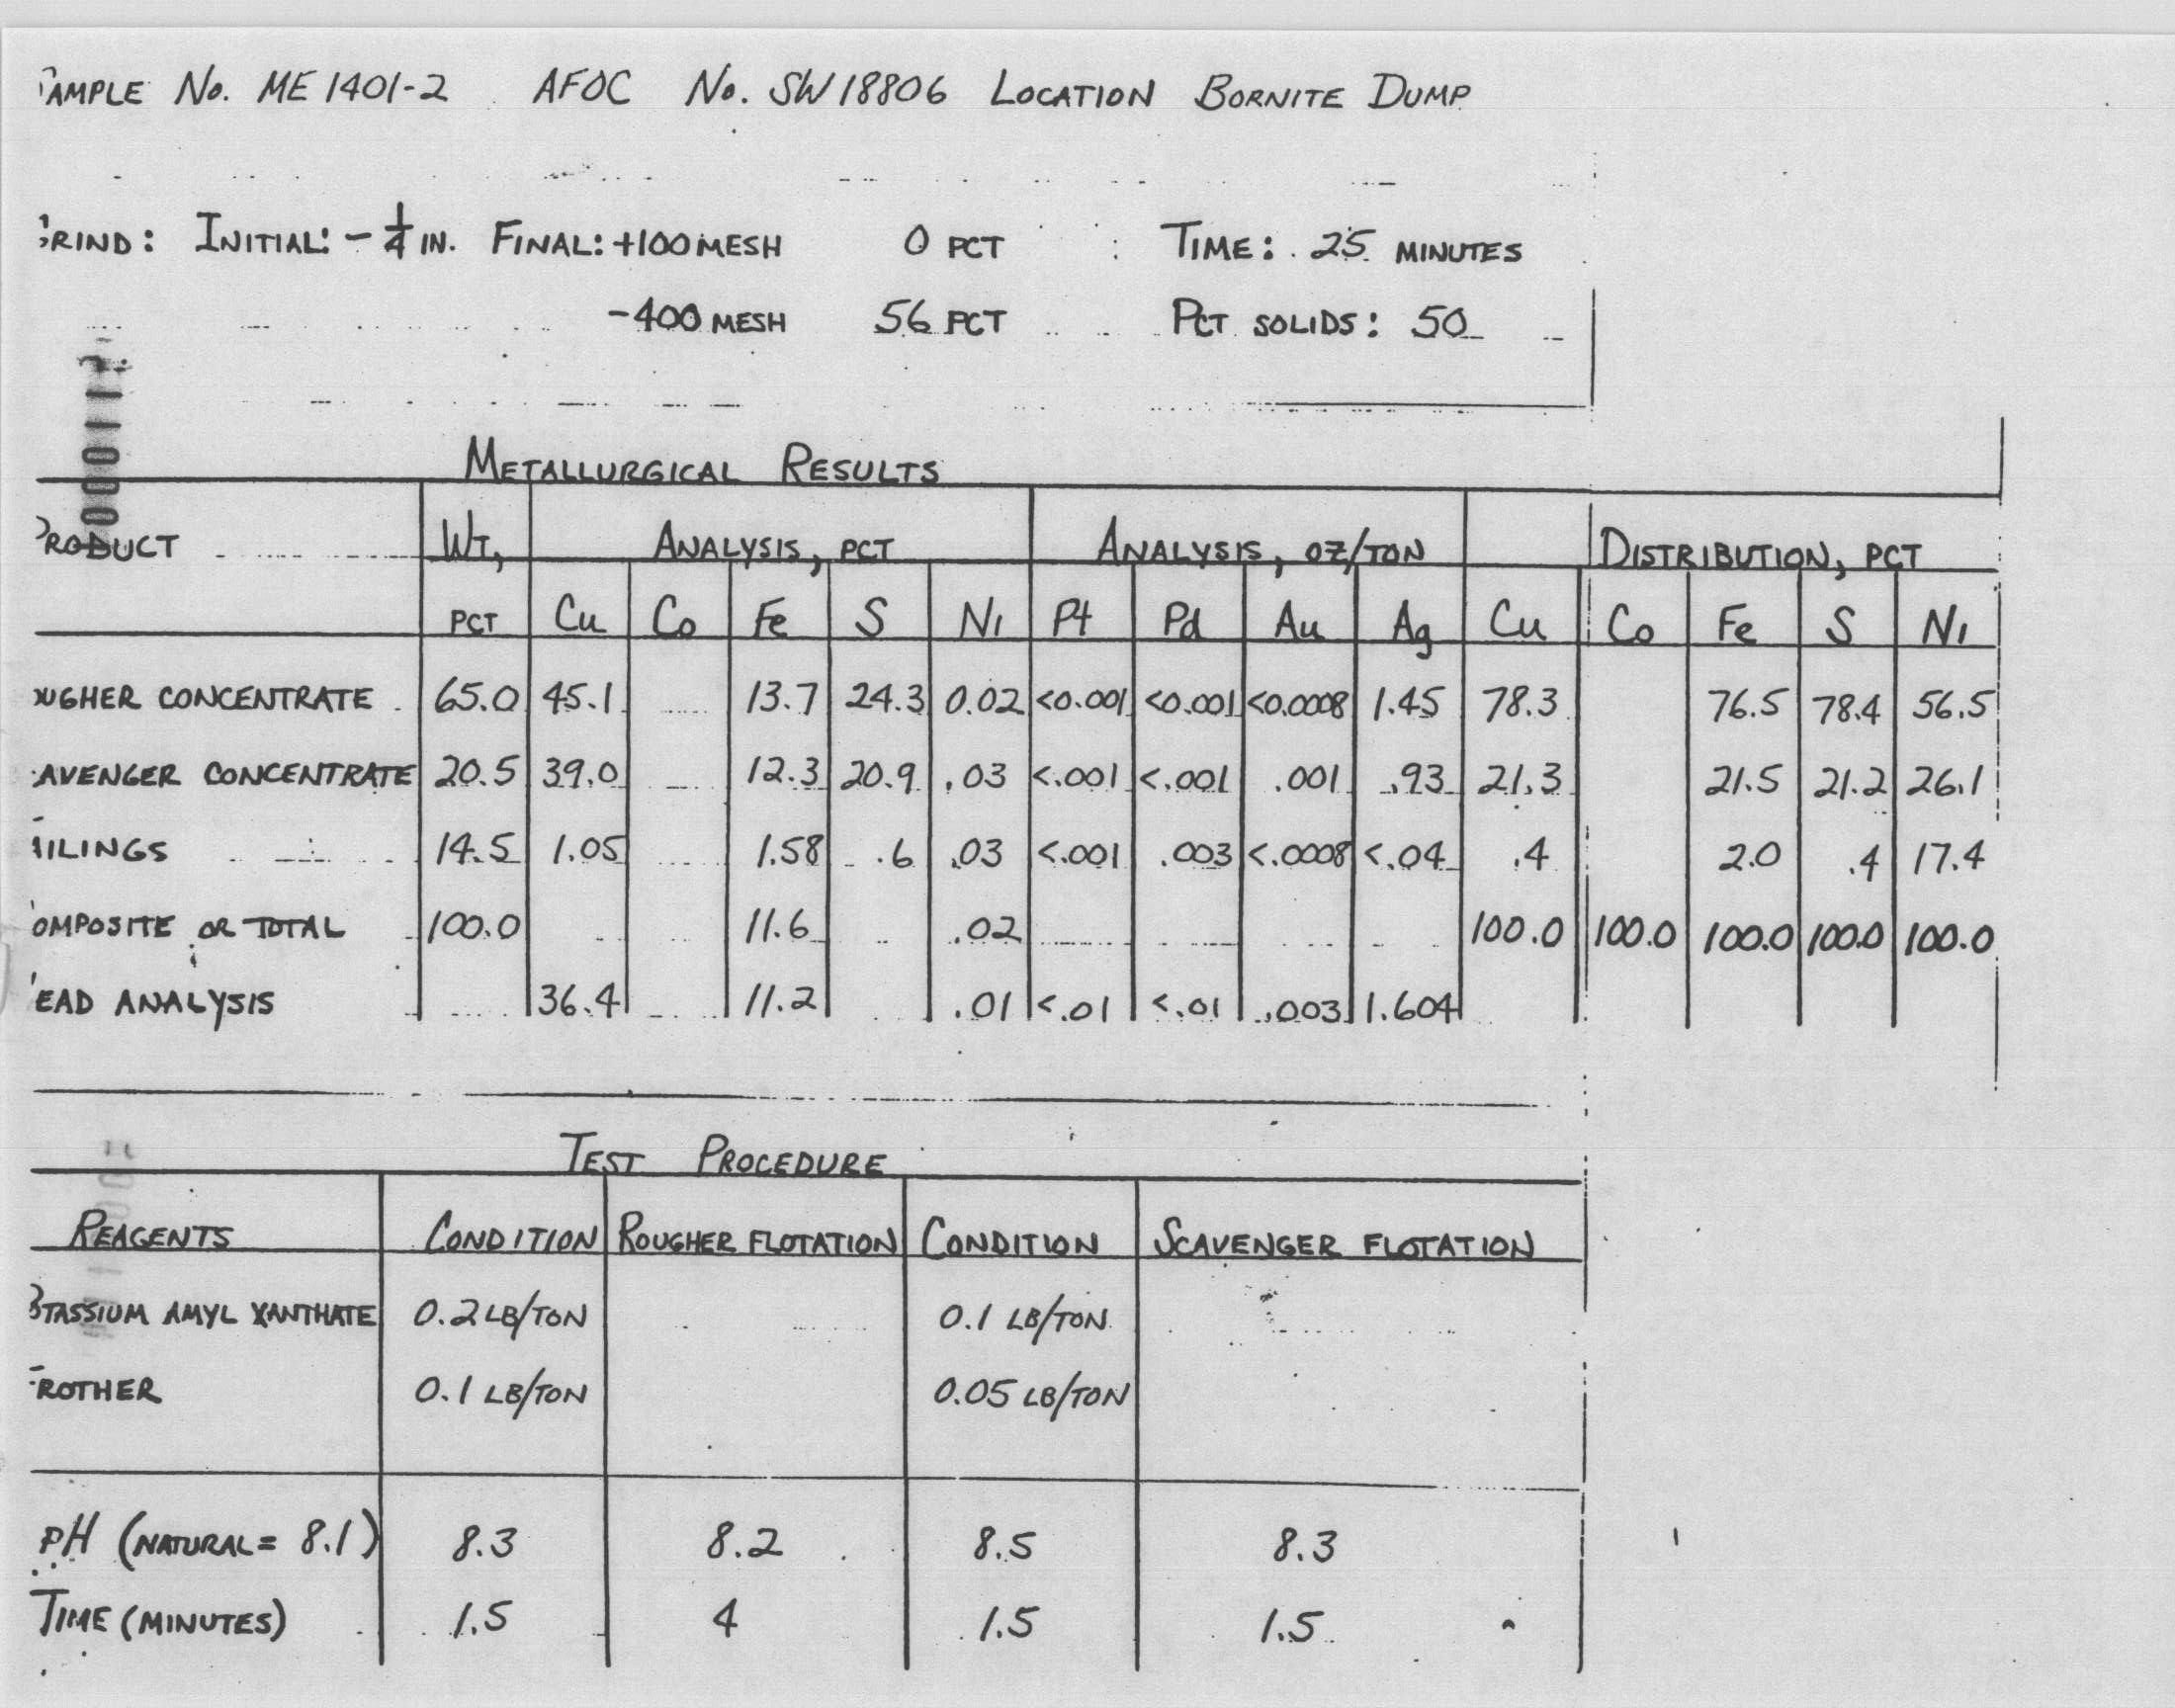 AMPLE No. ME 1401-2 AFOC No. SW 18806 LOCATION BORNITE DUMP
RIND: INITIAL: - 1/4 IN. FINAL: +100 MESH 0 PCT TIME: 25 MINUTES
-400 MESH 56 PCT PCT SOLIDS: 50
METALLURGICAL RESULTS
PRODUCT WT, ANALYSIS, PCT ANALYSIS, OZ/TON DISTRIBUTION, PCT
PCT Cu Co Fe S Ni Pt Pd Au Ag Cu Co Fe S Ni
UGHER CONCENTRATE 65.0 45.1 13.7 24.3 0.02 <0.001 <0.001 <0.0008 1.45 78.3 76.5 78.4 56.5
AVENGER CONCENTRATE 20.5 39.0 12.3 20.9 .03 <.001 <.001 .001 .93 21.3 21.5 21.2 26.1
AILINGS 14.5 1.05 1.58 .6 .03 <.001 .003 <.0008 <.04 .4 2.0 .4 17.4
OMPOSITE OR TOTAL 100.0 11.6 .02 100.0 100.0 100.0 100.0 100.0
EAD ANALYSIS 36.4 11.2 .01 <.01 <.01 .003 1.604
TEST PROCEDURE
REAGENTS CONDITION ROUGHER FLOTATION CONDITION SCAVENGER FLOTATION
OTASSIUM AMYL XANTHATE 0.2 LB/TON 0.1 LB/TON
FROTHER 0.1 LB/TON 0.05 LB/TON
PH (NATURAL = 8.1) 8.3 8.2 8.5 8.3
TIME (MINUTES) 1.5 4 1.5 1.5